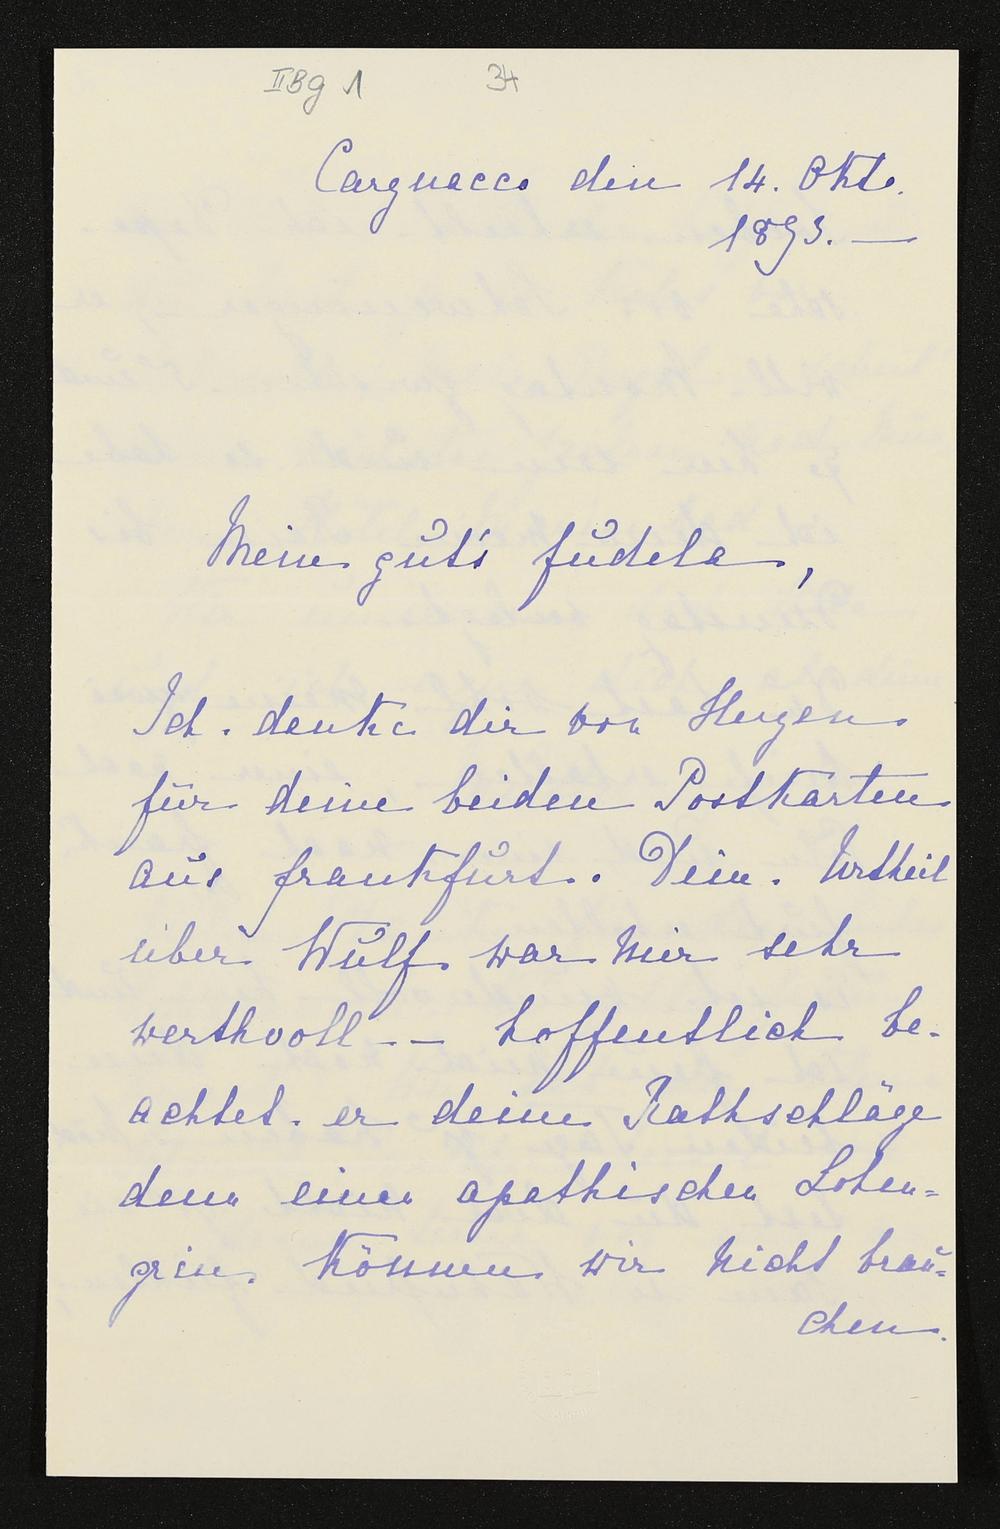 II Bg 1 34
Cargnacco den 14. Okto.
1893. —
Mein gut's fudela,
Ich danke dir von Herzen
für deine beiden Postkarten
aus frankfurt. Dein Urtheil
über Wulf war mir sehr
werthvoll -- hoffentlich be-
achtet er deine Rathschläge
denn einen apathischen Lohen=
grin können wir nicht brau=
chen.